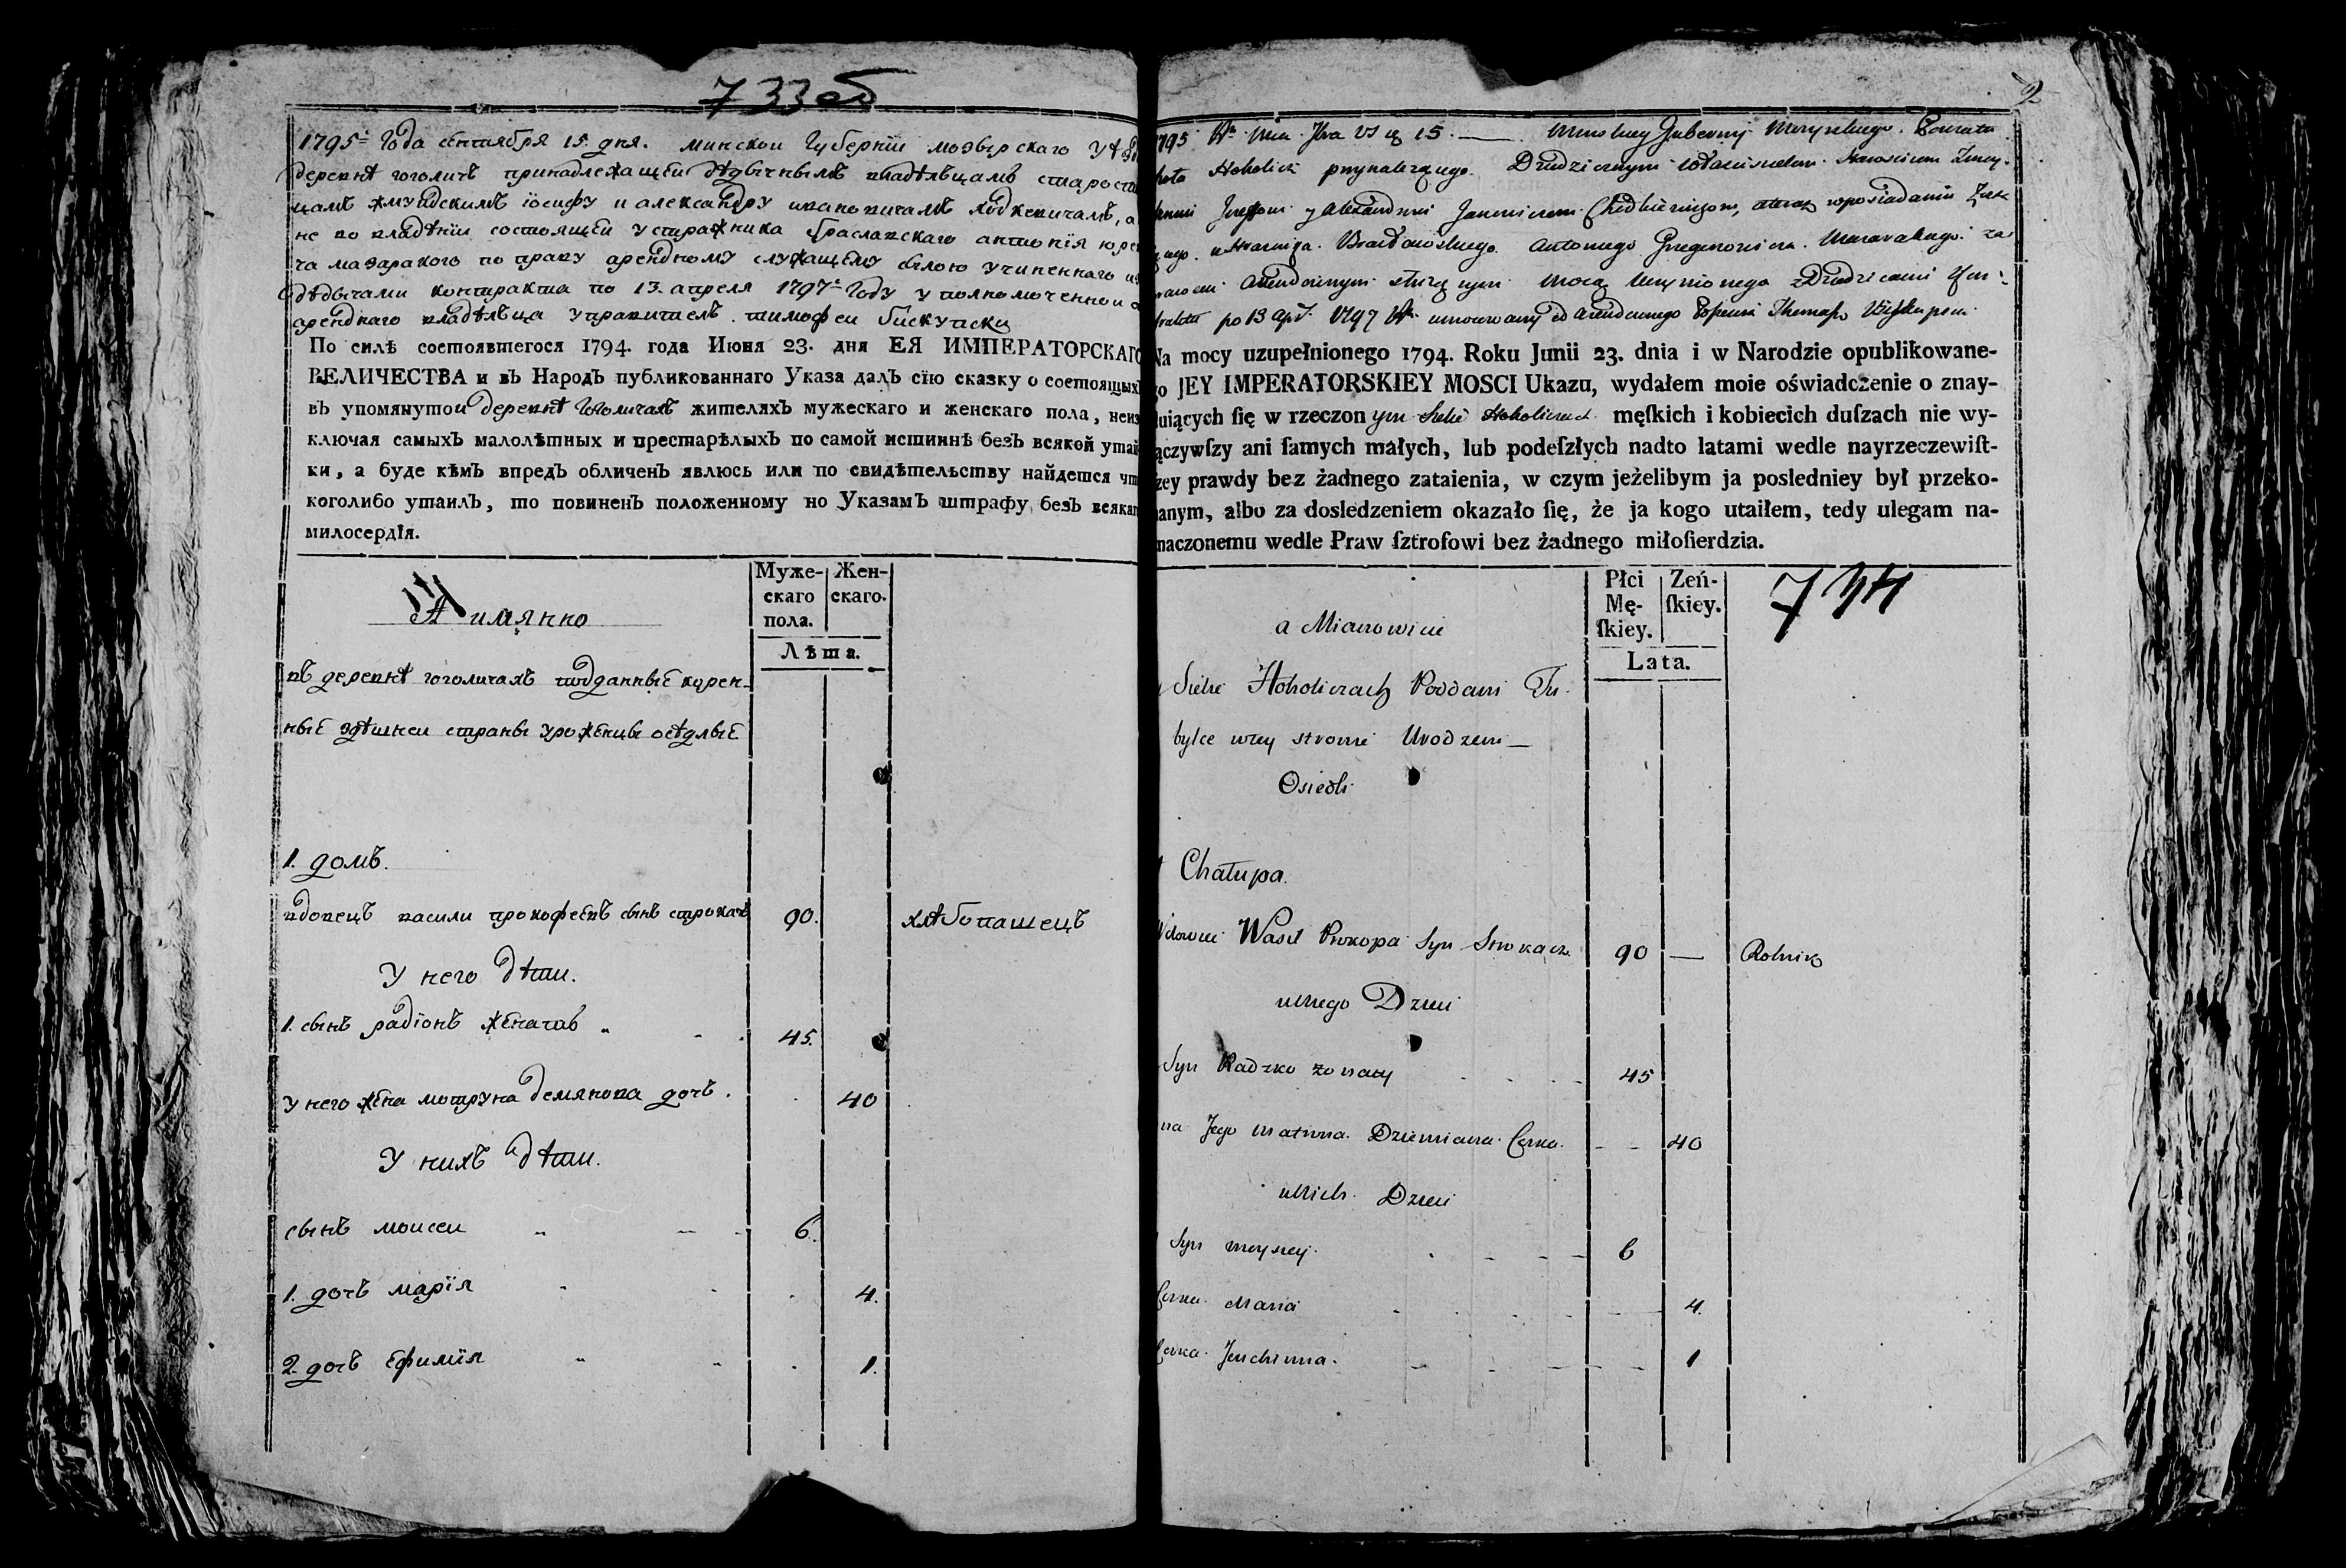 733 об
1795 года сентября 15. дня. минскои губернїи мозырскаго
деревнѣ гоголичъ принадлежащей дѣдычнымъ владѣльцамъ
жмуидскимъ їосифу и александру ивановичамъ ходкевичамъ,
не во владѣнїи состоящей у стражника браславскаго антонїя
по праву арендному служащему силою учиненнаго
дѣдычами контракта по 13. апреля 1797 году уполномоченнои
аренднаго владѣльца управитель тимофеи бискупски
По силѣ состоявшегося 1794. года Июня 23. дня ЕЯ ИМПЕРАТОРСКАГО
ВЕЛИЧЕСТВА и въ Народъ публикованнаго Указа далъ сїю сказку о состоящихъ
въ упомянутои деревнѣ гоголичахъ жителяхъ мужескаго и женскаго пола, неиз
ключая самыхъ малолѣтныхъ и престарѣлыхъ по самой истиннѣ безъ всякой утай
ки, а буде кѣмъ впредъ обличенъ явлюсь или по свидѣтельству найдется
коголибо утаилъ, то повиненъ положенному по Указамъ штрафу безъ всякаг
милосердїя.
А имянно
Муже-
скаго
пола.
Жен-
скаго.
Лѣта.
въ деревнѣ гоголичахъ подданные корен-
ные здѣшнеи страны уроженцы осѣдлые
1. домъ.
вдовецъ васили прокофеевъ сынъ строкачь 90. хлѣбопашецъ
У него дѣти.
1. сынъ радїонъ женатъ 45.
У него жена мотруна демянова дочъ. 40
У нихъ дѣти.
сынъ моисеи 6.
1. дочъ марїя 4.
2. дочъ ефимїя 1.
2
1795 15 Gubernij Mozyrskiego Powiatu
Hoholicz przynależącego Dziedzicznym
Jozefowi y Alexandrowi Janowiczom Chodkiewiczom, ateraz wposiadaniu
Antoniego Grzegorzewicza
Arendownym służącym mocą uczynionego zDziedzicami
po 13 Apr. 1797
Na mocy uzupełnionego 1794. Roku Junii 23. dnia i w Narodzie opublikowane-
go JEY IMPERATORSKIEY MOSCI Ukazu, wydałem moie oświadczenie o znay-
duiących ſię w rzeczonym Siele Hoholiczach męſkich i kobiecich duſzach nie wy-
ączywſzy ani ſamych małych, lub podeſzłych nadto latami wedle nayrzeczewiſt-
zey prawdy bez żadnego zataienia, w czym jeżelibym ja posledniey był przeko-
anym, albo za dosledzeniem okazało ſię, że ja kogo utaiłem, tedy ulegam na-
naczonemu wedle Praw ſztrofowi bez żadnego miłoſierdzia.
a Mianowicie
Płci
Mę-
ſkiey.
Zeń-
ſkiey.
Lata.
734
Siele Hoholiczach Poddani Tu-
bylce wtey stronie Urodzeni
Osiedli
Chałupa.
Wdowiec Wasil Prokopa Syn Strokacz 90 — Rolnik
uniego Dzieci
Syn Radzko żonaty 45
Jego Matruna Dziemiana Corka. 40
unich Dzieci
Syn Moysiey 6
Corka Maria 4
Corka Jeuchimia 1